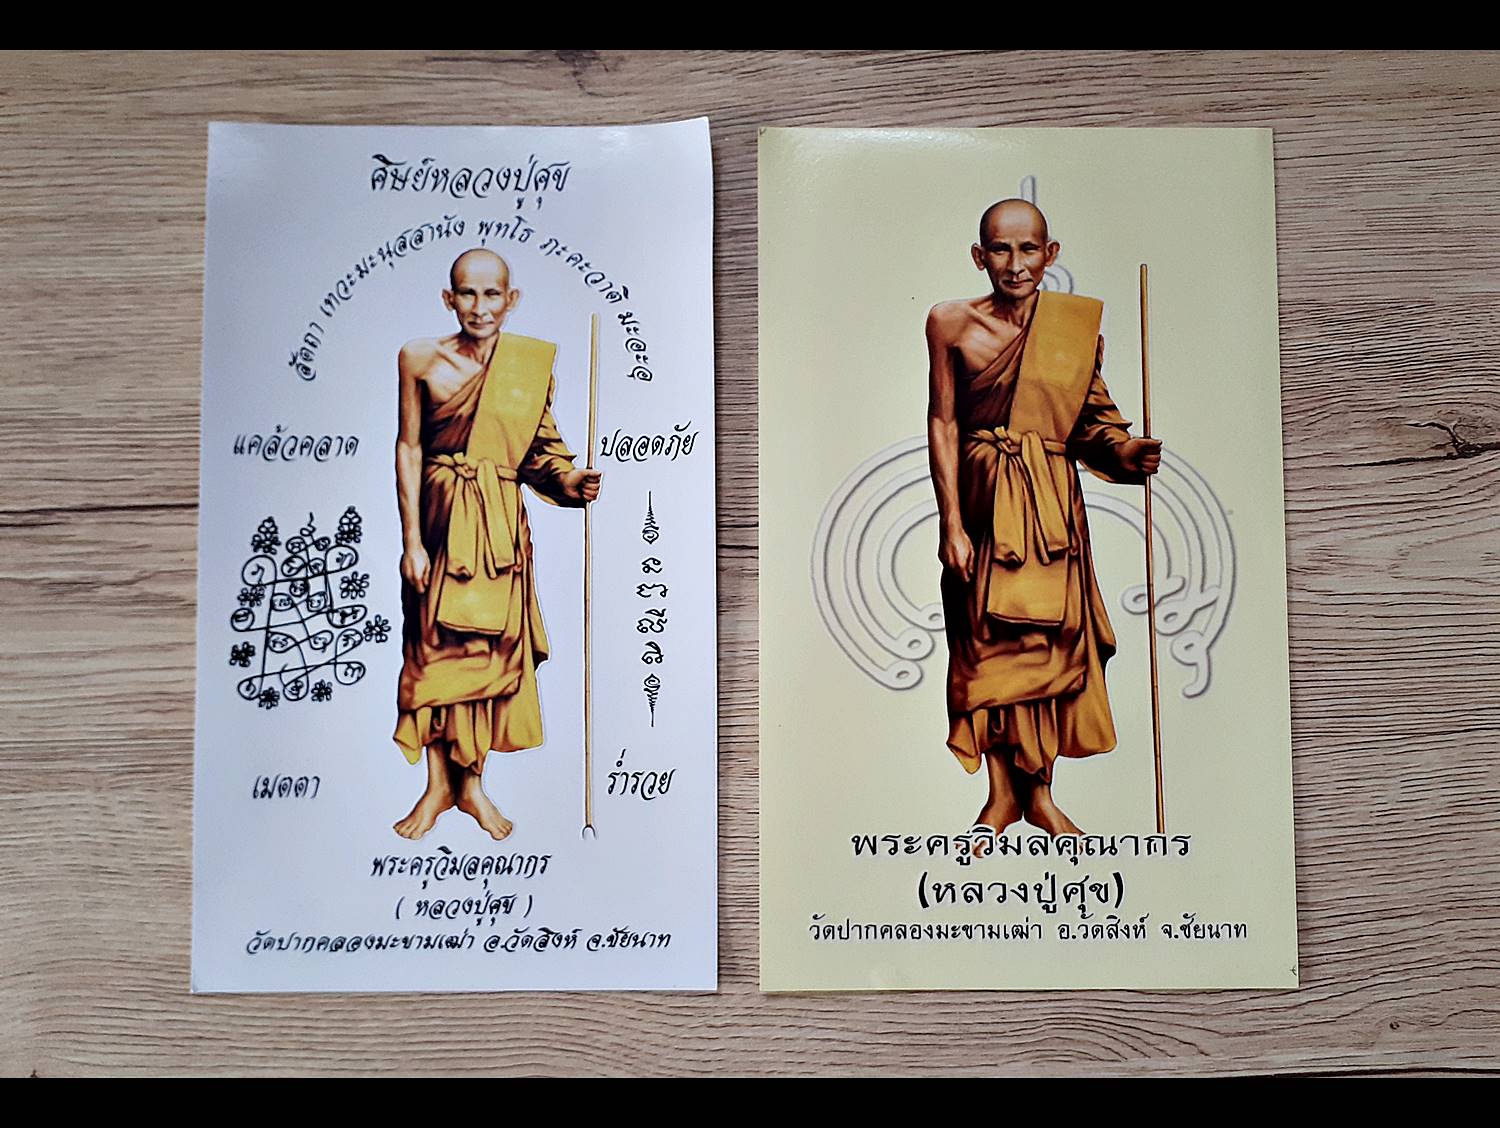 ศิษย์หลวงปู่ศุข
สัตถา เทวะมะนุสสานัง พุทโธ ภะคะวาติ มะอะอุ
แคล้วคลาด
ปลอดภัย
เมตตา
ร่ำรวย
พระครูวิมลคุณากร
( หลวงปู่ศุข )
วัดปากคลองมะขามเฒ่า อ.วัดสิงห์ จ.ชัยนาท
พระครูวิมลคุณากร
(หลวงปู่ศุข)
วัดปากคลองมะขามเฒ่า อ.วัดสิงห์ จ.ชัยนาท